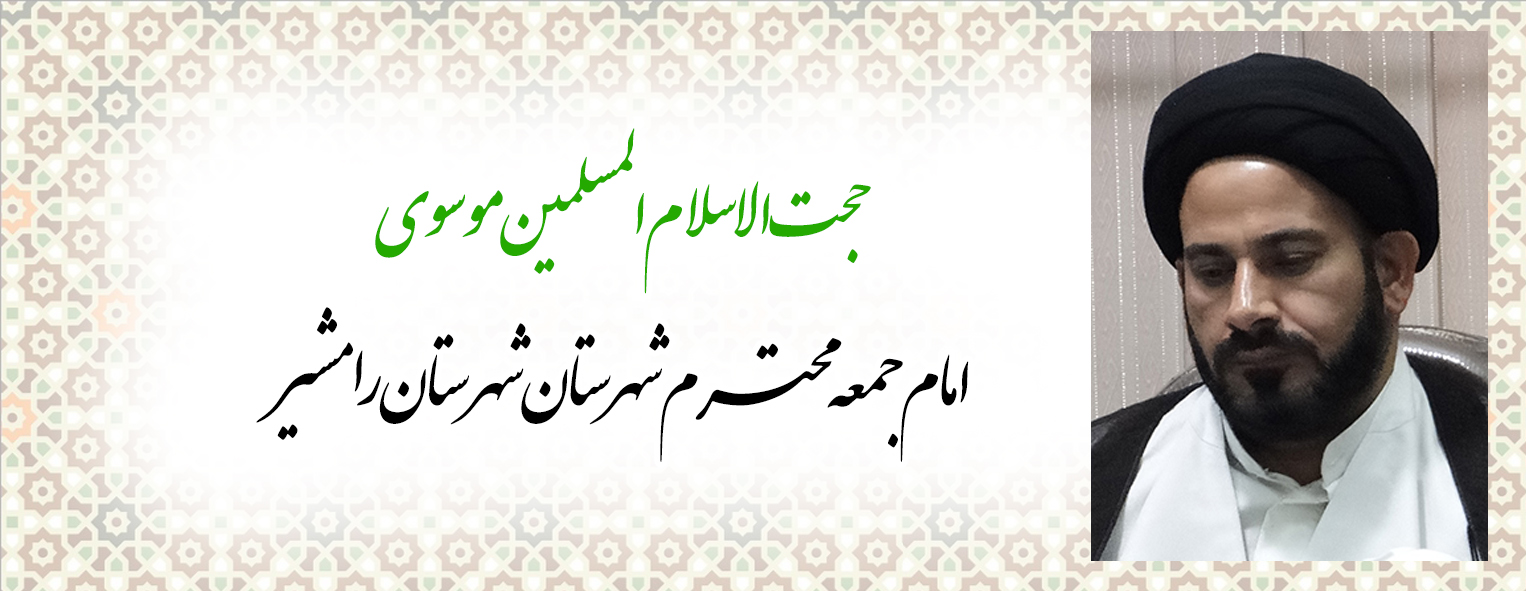 حجت الاسلام المسلمین موسوی
امام جمعه محترم شهرستان شهرستان رامشیر